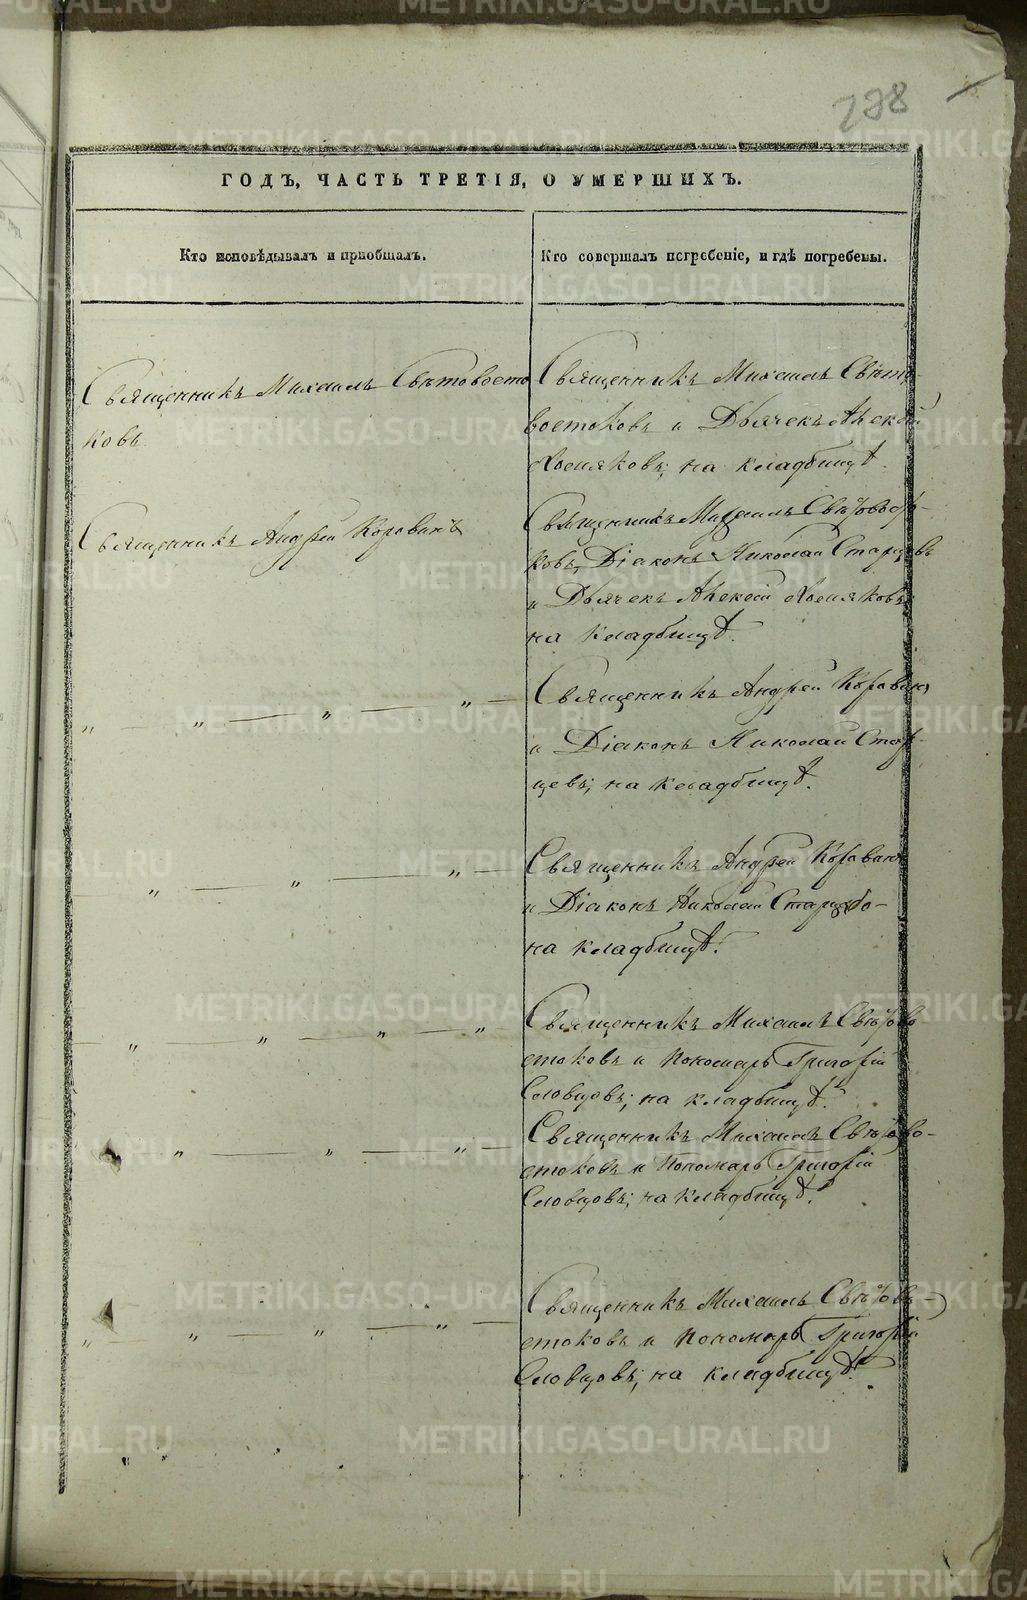 278
ГОДЪ, ЧАСТЬ ТРЕТІЯ, О УМЕРШИХЪ.
Кто исповѣдывалъ и пріобщалъ.
Кто совершалъ погребеніе, и гдѣ погребены.
Священникъ Михаилъ Свѣтовосто
ковъ
Священникъ Михаилъ Свѣто
востоковъ и Дьячекъ Алексѣй
Хомяковъ; на кладбищѣ.
Священникъ Андрей Корованъ
Священникъ Михаилъ Свѣтовост-
ковъ, Діаконъ Николай Старцевъ
и Дьячекъ Алексій Хомяковъ
на кладбищѣ.
„ — „ — „ — „ —
Священникъ Андрей Корованъ
и Діаконъ Николай Стар-
цевъ; на кладбищѣ.
„ — „ — „ —
Священникъ Андрей Корованъ
и Діаконъ Николай Старцевъ-
на кладбищѣ.
„ — „ — „ — „
Священникъ Михаилъ Свѣтово
стоковъ и Пономарь Григорій
Словцовъ; на кладбищѣ.
„ — „ — „ —
Священникъ Михаилъ Свѣтово-
стоковъ и Пономарь Григорій
Словцовъ; на кладбищѣ.
„ — „ — „ — „ —
Священникъ Михаилъ Свѣтово-
стоковъ и Пономарь Григорій
Словцовъ; на кладбищѣ.
METRIKI.GASO-URAL.RU